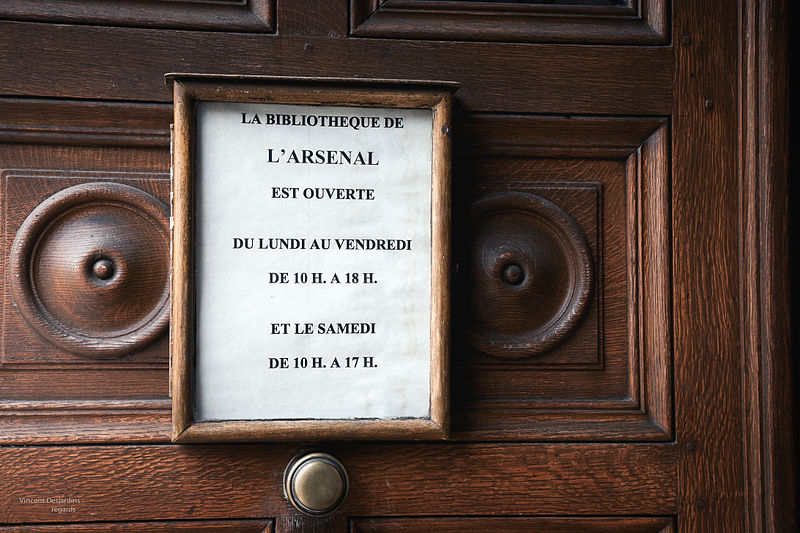 LA BIBLIOTHEQUE DE
L'ARSENAL
EST OUVERTE
DU LUNDI AU VENDREDI
DE 10 H. A 18 H.
ET LE SAMEDI
DE 10 H. A 17 H.
Vincent Desjardins
regards